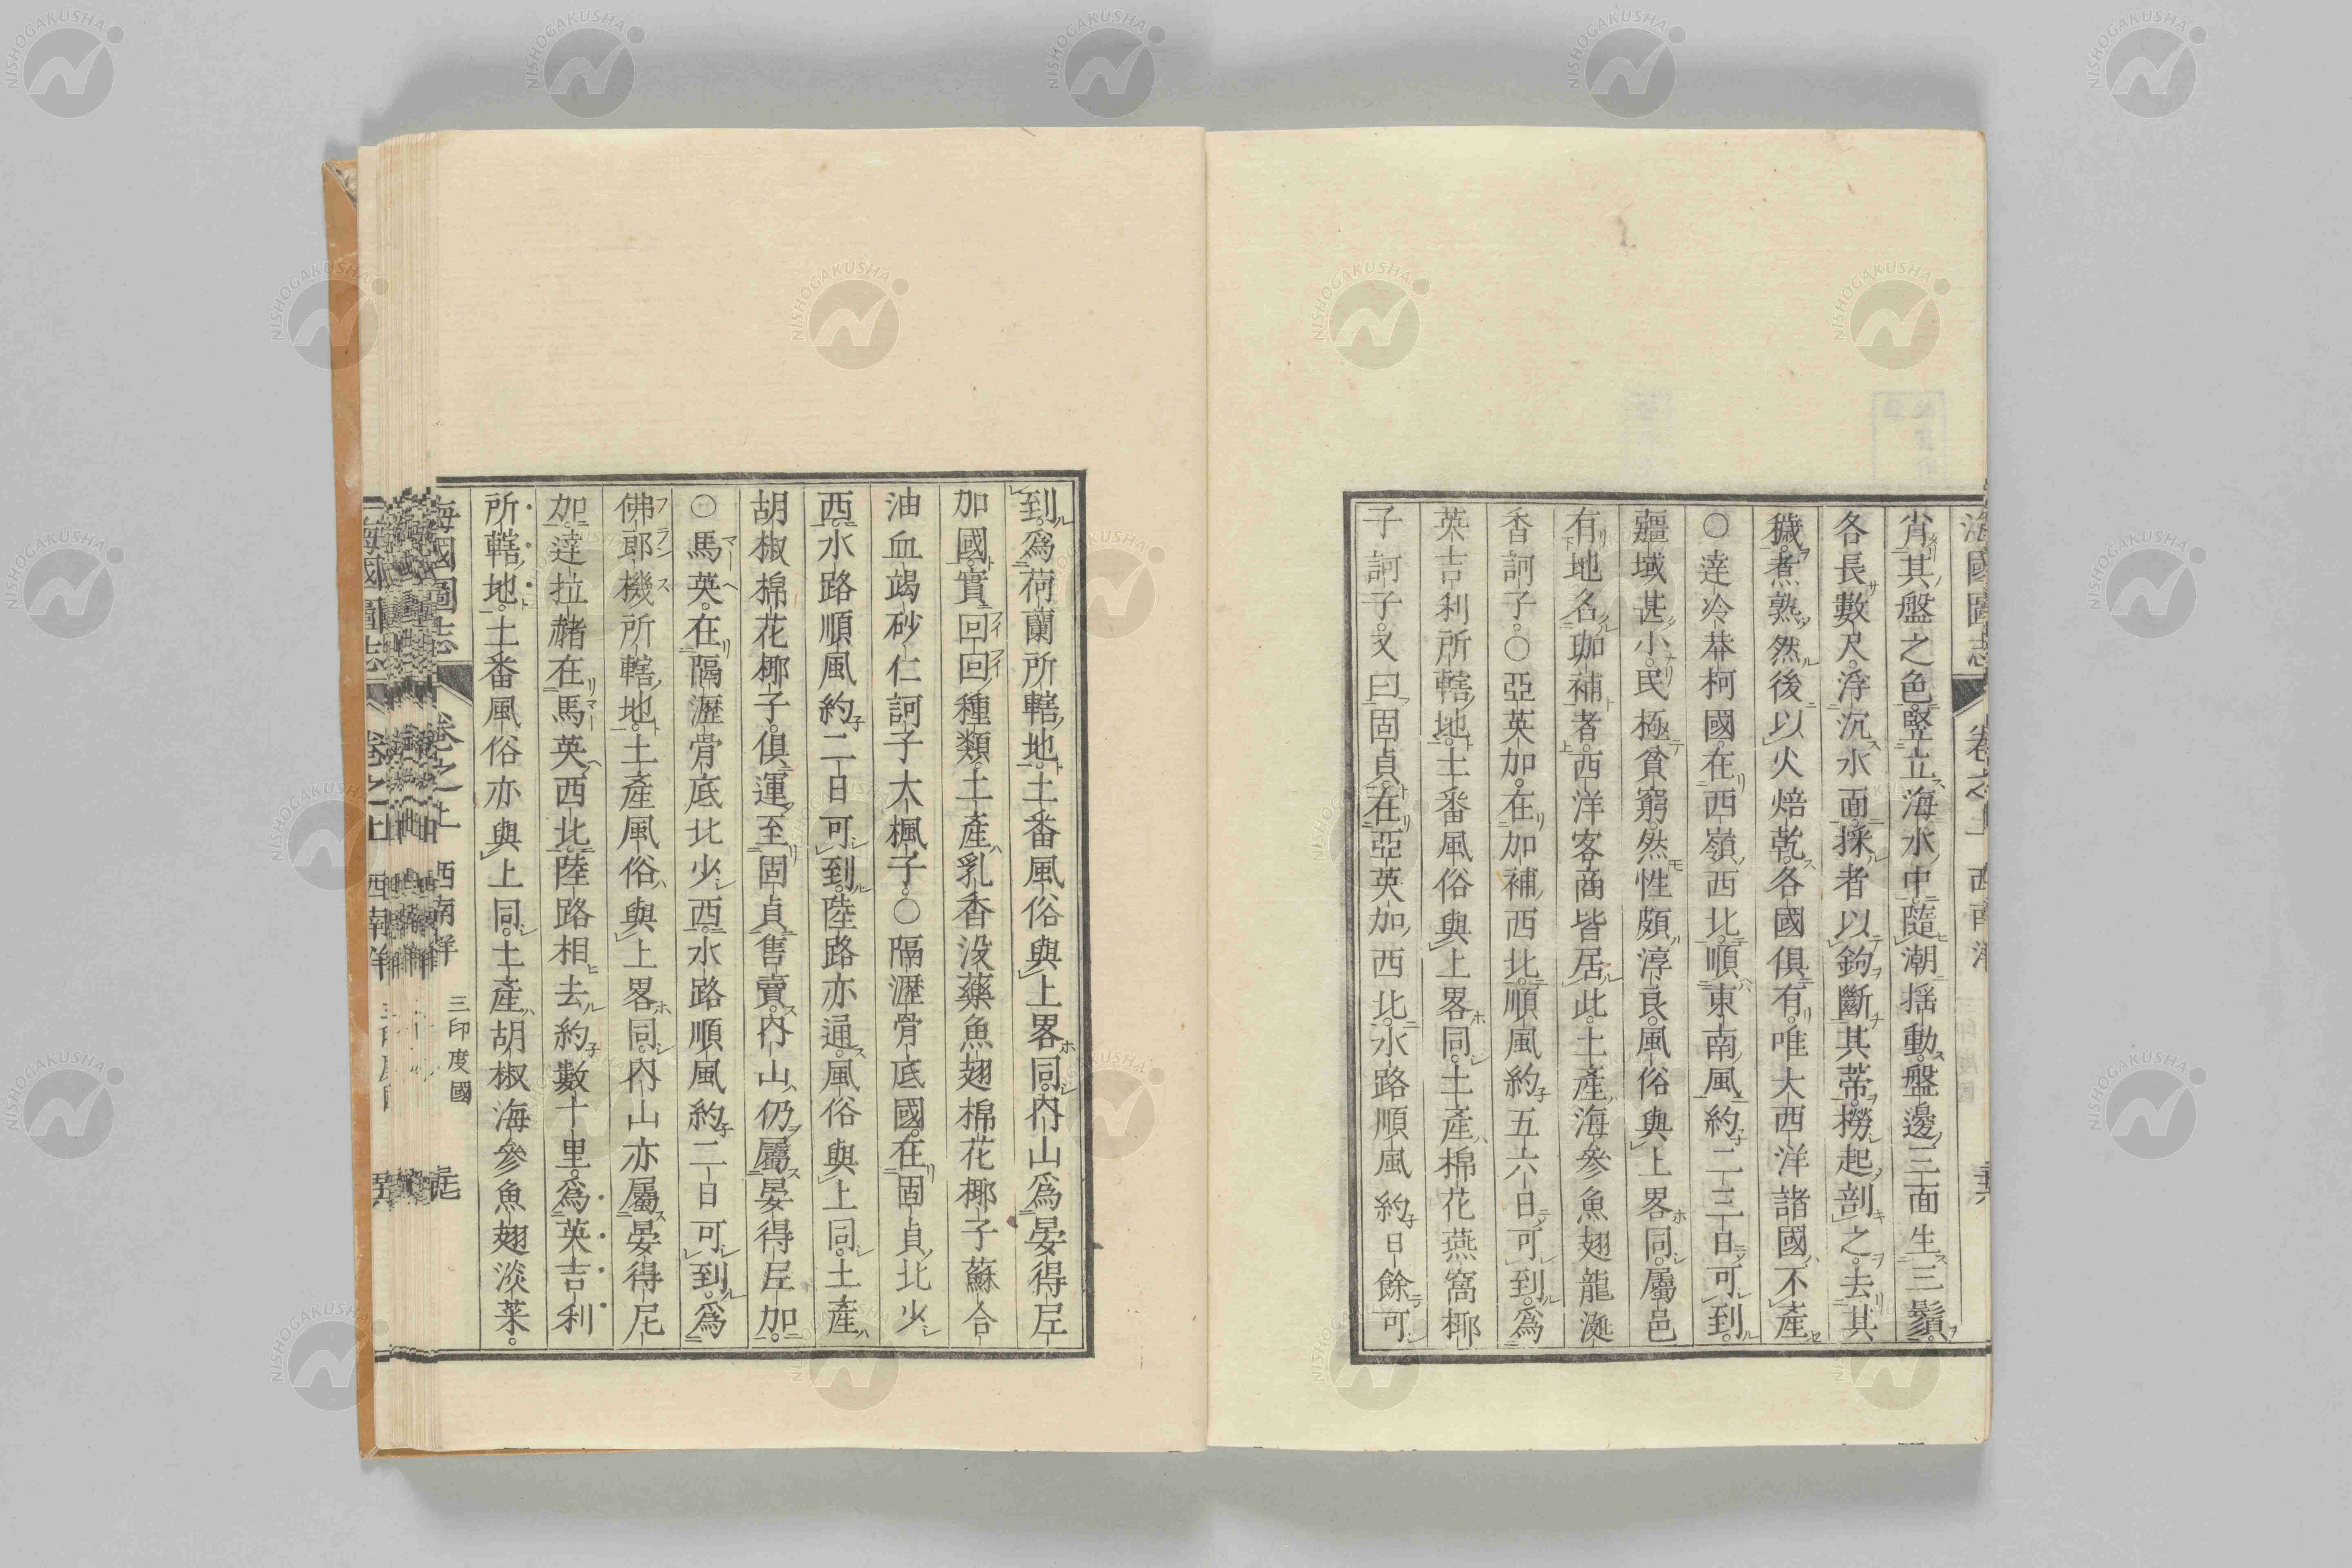 肖其盤之色豎立海水中隨潮揺動盤邊三面生三鬚
各長數尺浮沉水面採者以鉤斷其蒂撈起剖之去其
穢煮熟然後以火焙乾各國俱有唯大西洋諸國不產
〇達冷莽柯國在西嶺西北順東南風約二三日可到
疆域甚小民極貧窮然性頗淳良風俗與上畧同屬邑
有地名珈補者西洋客商皆居此土產海參魚翅龍涎
香訶子〇亞英加在加補西北順風約五六日可到爲
英吉利所轄地土番風俗與上畧同土產棉花燕窩椰
子訶子又曰固貞在亞英加西北水路順風約日餘可
到爲荷蘭所轄地土番風俗與上畧同內山爲晏得尼
加國實回回種類土產乳香没藥魚翅棉花椰子蘇合
油血竭砂仁訶子大楓子〇隔瀝骨底國在固貞北少
西水路順風約二日可到陸路亦通風俗與上同土產
胡椒棉花椰子俱運至固貞售賣內山仍屬晏得尼加
〇馬英在隔瀝骨底北少西水路順風約二日可到爲
佛郎機所轄地土產風俗與上畧同內山亦屬晏得尼
加達拉赭在馬英西北陸路相去約數十里爲英吉利
所轄地土番風俗亦與上同土產胡椒海參魚翅淡菜
海國圖志 卷之上 西南洋 三印度國
NISHOGAKUSHA